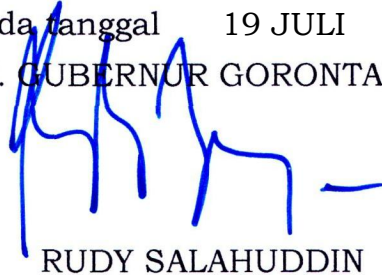 da tanggal 19 JULI
. GUBERNUR GORONTA
RUDY SALAHUDDIN